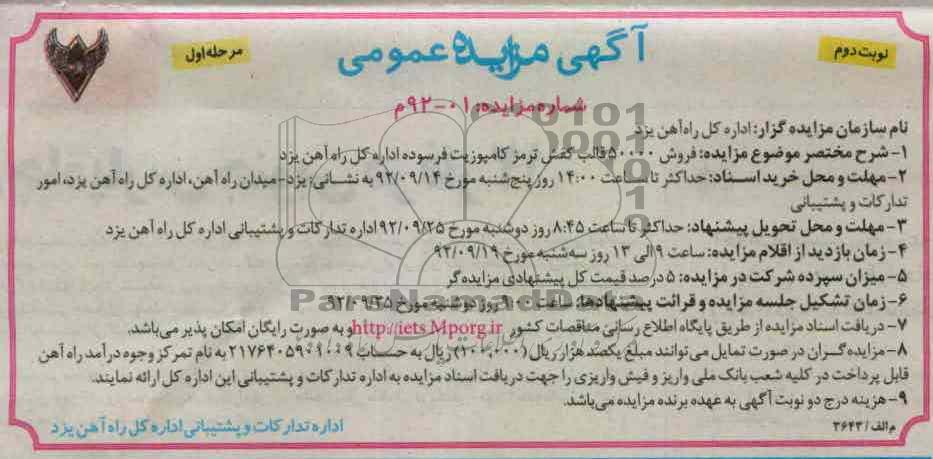 نوبت دوم
آگهی مزایده عمومی
مرحله اول
شماره مزایده: ۰۱-۹۲م
نام سازمان مزایده گزار: اداره کل راه‌آهن یزد
۱- شرح مختصر موضوع مزایده: فروش ۵۰۰۲۰ قالب کفش ترمز کامپوزیت فرسوده اداره کل راه آهن یزد
۲- مهلت و محل خرید اسناد: حداکثر تا ساعت ۱۴:۰۰ روز پنج‌شنبه مورخ ۹۲/۰۹/۱۴ به نشانی: یزد- میدان راه آهن، اداره کل راه آهن یزد، امور
تدارکات و پشتیبانی
۳- مهلت و محل تحویل پیشنهاد: حداکثر تا ساعت ۸:۴۵ روز دوشنبه مورخ ۹۲/۰۹/۲۵ اداره تدارکات و پشتیبانی اداره کل راه آهن یزد
۴- زمان بازدید از اقلام مزایده: ساعت ۹ الی ۱۳ روز سه‌شنبه مورخ ۹۲/۰۹/۱۹
۵- میزان سپرده شرکت در مزایده: ۵ درصد قیمت کل پیشنهادی مزایده‌گر
۶- زمان تشکیل جلسه مزایده و قرائت پیشنهادها: ساعت ۹:۰۰ روز دوشنبه مورخ ۹۲/۰۹/۲۵
۷- دریافت اسناد مزایده از طریق پایگاه اطلاع رسانی مناقصات کشور http://iets.Mporg.ir و به صورت رایگان امکان پذیر می‌باشد.
۸- مزایده‌گران در صورت تمایل می‌توانند مبلغ یکصد هزار ریال (۱۰۰,۰۰۰) ریال به حساب ۲۱۷۶۴۰۵۹۰۱۰۰۹ به نام تمرکز وجوه درآمد راه آهن
قابل پرداخت در کلیه شعب بانک ملی واریز و فیش واریزی را جهت دریافت اسناد مزایده به اداره تدارکات و پشتیبانی این اداره کل ارائه نمایند.
۹- هزینه درج دو نوبت آگهی به عهده برنده مزایده می‌باشد.
م الف/ ۲۶۴۳
اداره تدارکات و پشتیبانی اداره کل راه آهن یزد